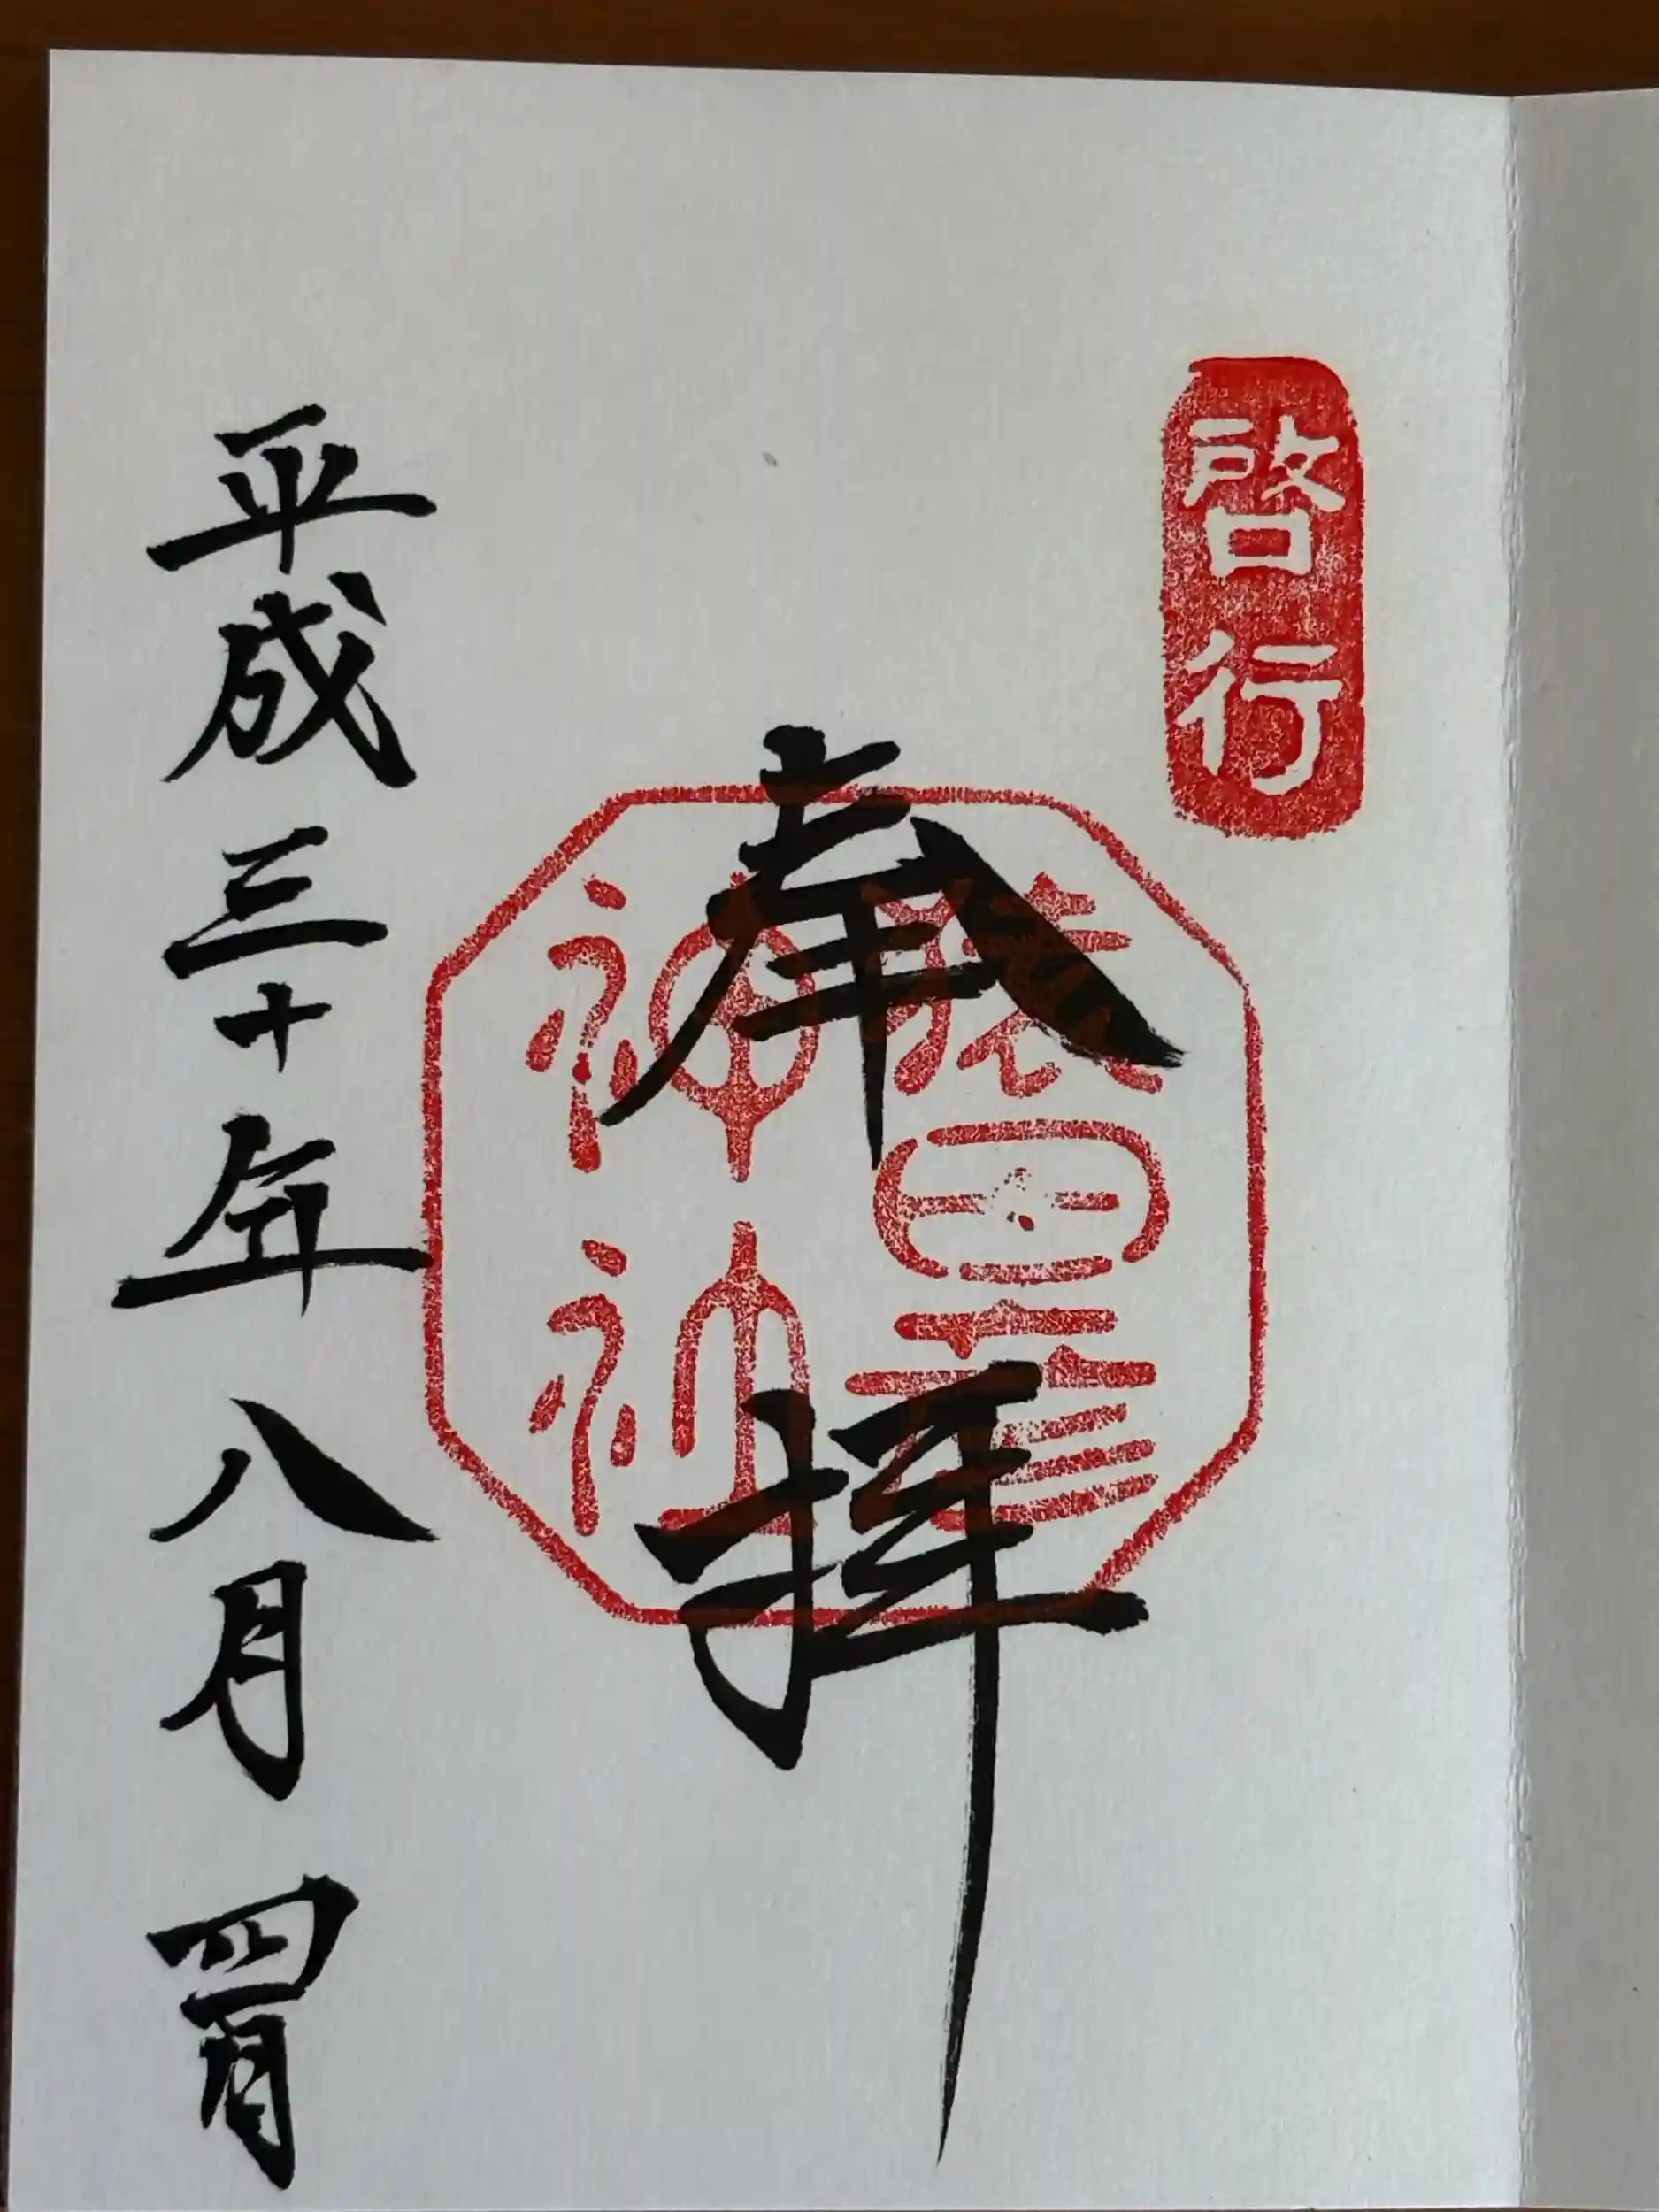 啓行
奉拝
猿田彦
神社
平成三十年八月四日